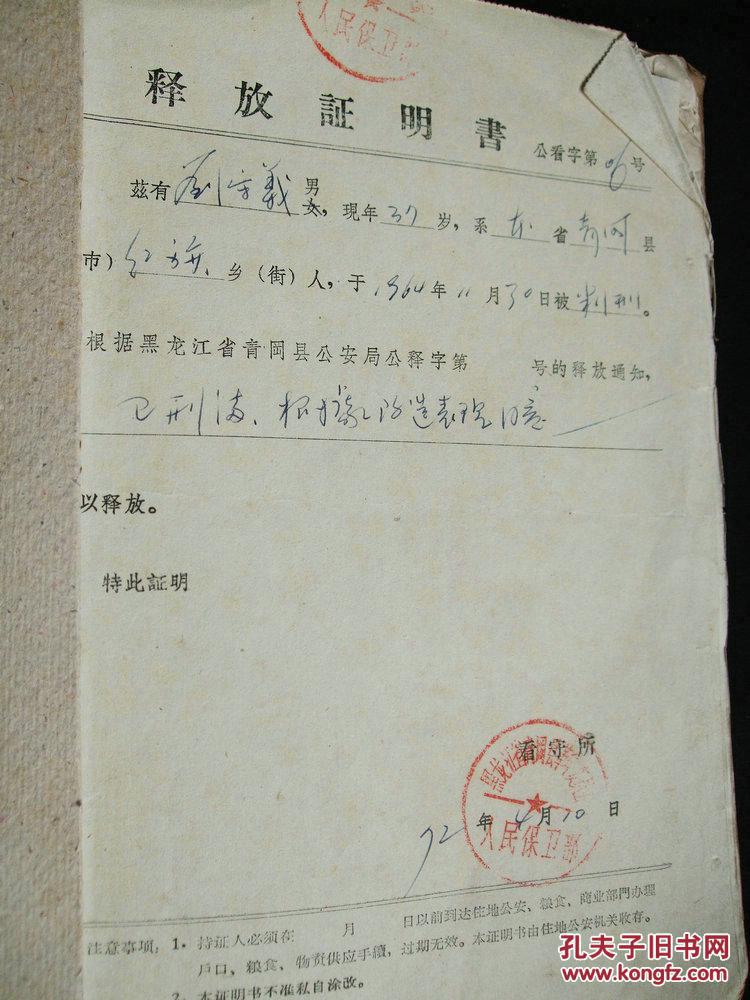 人民保卫部
释放証明書
公看字第06号
兹有刘守义男女，現年37岁，系本省青冈县
市）红旗乡（街）人，于1964年11月30日被判刑。
根据黑龙江省青岡县公安局公釋字第 号的释放通知，
已刑满、根据改造表现同意
以释放。
特此証明
看守所
黑龙江省青冈县
人民保卫部
72年4月10日
注意事項：1．持証人必须在 月 日以前到达住地公安、粮食、商业部門办理
戶口、粮食、物资供应手續，过期无效。本証明书由住地公安机关收存。
2．本証明书不准私自涂改。
孔夫子旧书网
www.kongfz.com